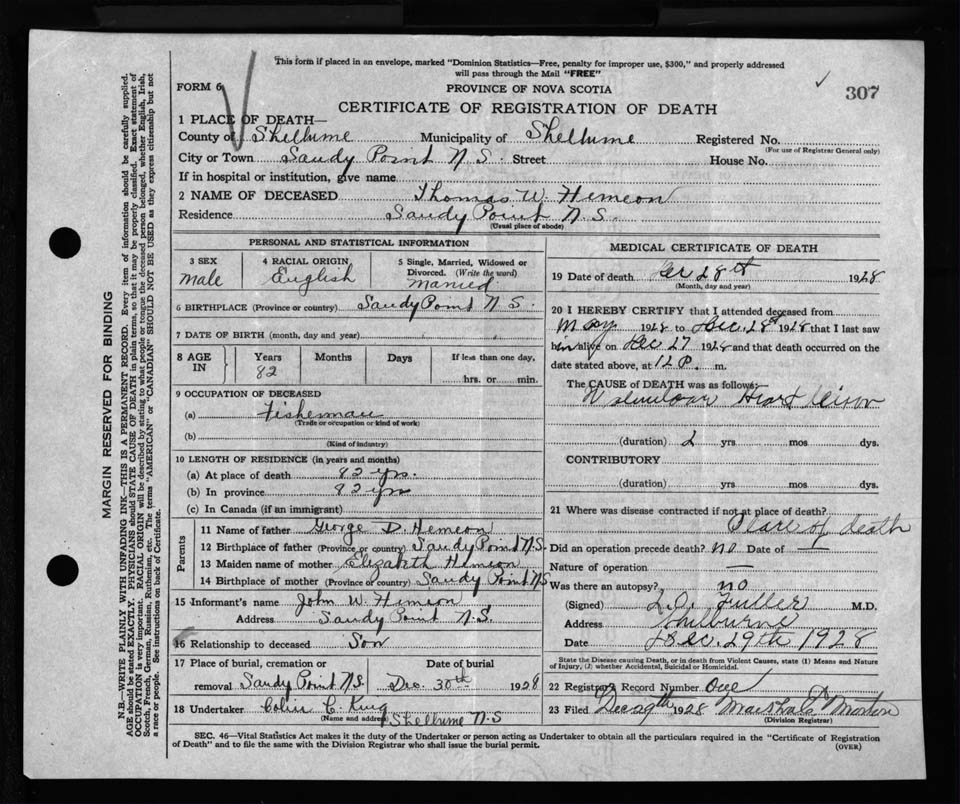 This form if placed in an envelope, marked "Dominion Statistics—Free, penalty for improper use, $300," and properly addressed
will pass through the Mail "FREE"
FORM 6
PROVINCE OF NOVA SCOTIA
307
CERTIFICATE OF REGISTRATION OF DEATH
1 PLACE OF DEATH—
County of Shelburne Municipality of Shelburne Registered No.
(For use of Registrar General only)
City or Town Sandy Point N.S. Street House No.
If in hospital or institution, give name
2 NAME OF DECEASED Thomas W. Hemeon
Residence Sandy Point N.S.
(Usual place of abode)
MARGIN RESERVED FOR BINDING
N.B.—WRITE PLAINLY WITH UNFADING INK—THIS IS A PERMANENT RECORD. Every item of information should be carefully supplied.
AGE should be stated EXACTLY. PHYSICIANS should STATE CAUSE OF DEATH in plain terms, so that it may be properly classified. Exact statement of
OCCUPATION is very important. RACIAL ORIGIN will be described by stating to what people or tongue the deceased person belonged, whether English, Irish,
Scotch, French, German, Russian, Ruthenian, etc. The terms "AMERICAN" or "CANADIAN" SHOULD NOT BE USED as they express citizenship but not
a race or people. See instructions on back of Certificate.
PERSONAL AND STATISTICAL INFORMATION
3 SEX
male
4 RACIAL ORIGIN
English
5 Single, Married, Widowed or
Divorced. (Write the word)
Married
6 BIRTHPLACE (Province or country) Sandy Point N.S.
7 DATE OF BIRTH (month, day and year)
8 AGE
IN
Years
82
Months
Days
If less than one day,
hrs. or min.
9 OCCUPATION OF DECEASED
(a) Fisherman
(Trade or occupation or kind of work)
(b)
(Kind of industry)
10 LENGTH OF RESIDENCE (in years and months)
(a) At place of death 82 yrs.
(b) In province 82 yrs
(c) In Canada (if an immigrant)
Parents
11 Name of father George D. Hemeon
12 Birthplace of father (Province or country) Sandy Point N.S.
13 Maiden name of mother Elizabeth Hemeon
14 Birthplace of mother (Province or country) Sandy Point N.S
15 Informant's name John W. Hemeon
Address Sandy Point N.S.
16 Relationship to deceased Son
17 Place of burial, cremation or
removal Sandy Point N.S
Date of burial
Dec. 30th 1928
18 Undertaker Colin C. King
(Name and address) Shelburne N.S
MEDICAL CERTIFICATE OF DEATH
19 Date of death Dec 28th 1928
(Month, day and year)
20 I HEREBY CERTIFY that I attended deceased from
May 1928 to Dec. 28th 1928 that I last saw
him alive on Dec 27 1928 and that death occurred on the
date stated above, at 12 P. m.
The CAUSE of DEATH was as follows:
Valvular Heart Lesion
(duration) 2 yrs mos dys.
CONTRIBUTORY
(duration) yrs mos dys.
21 Where was disease contracted if not at place of death?
Place of death
Did an operation precede death? no Date of
Nature of operation —
Was there an autopsy? no
(Signed) Fuller M.D.
Address Shelburne
Date Dec. 29th 1928
State the Disease causing Death, or in death from Violent Causes, state (1) Means and Nature
of Injury, (2) whether Accidental, Suicidal or Homicidal.
22 Registrar's Record Number One
23 Filed Dec 29th 1928 Marshall Morton
(Division Registrar)
SEC. 46—Vital Statistics Act makes it the duty of the Undertaker or person acting as Undertaker to obtain all the particulars required in the "Certificate of Registration
of Death" and to file the same with the Division Registrar who shall issue the burial permit.
(OVER)